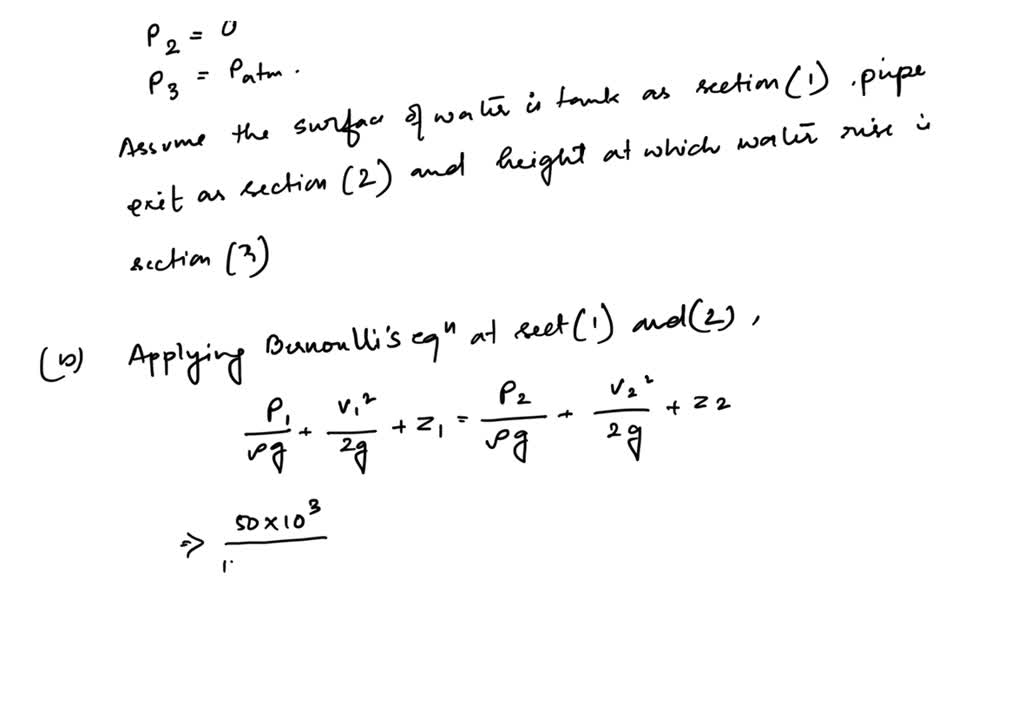 P2 = 0
P3 = Patm.
Assume the surface of water is tank as section (1). pipe
exit as section (2) and height at which water rise is
section (3)
(b) Applying Bernoulli's eqⁿ at sect (1) and (2),
P1/ρg + V1²/2g + z1 = P2/ρg + V2²/2g + z2
⇒ 50×10³/1